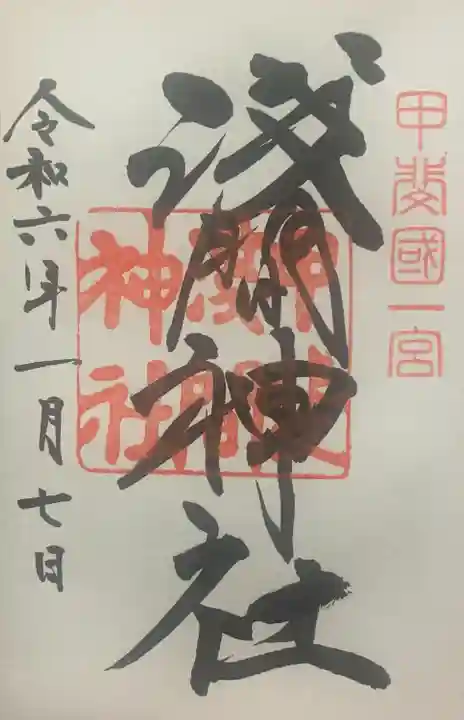 甲斐國一宮
淺間神社
甲斐國淺間神社
令和六年一月七日